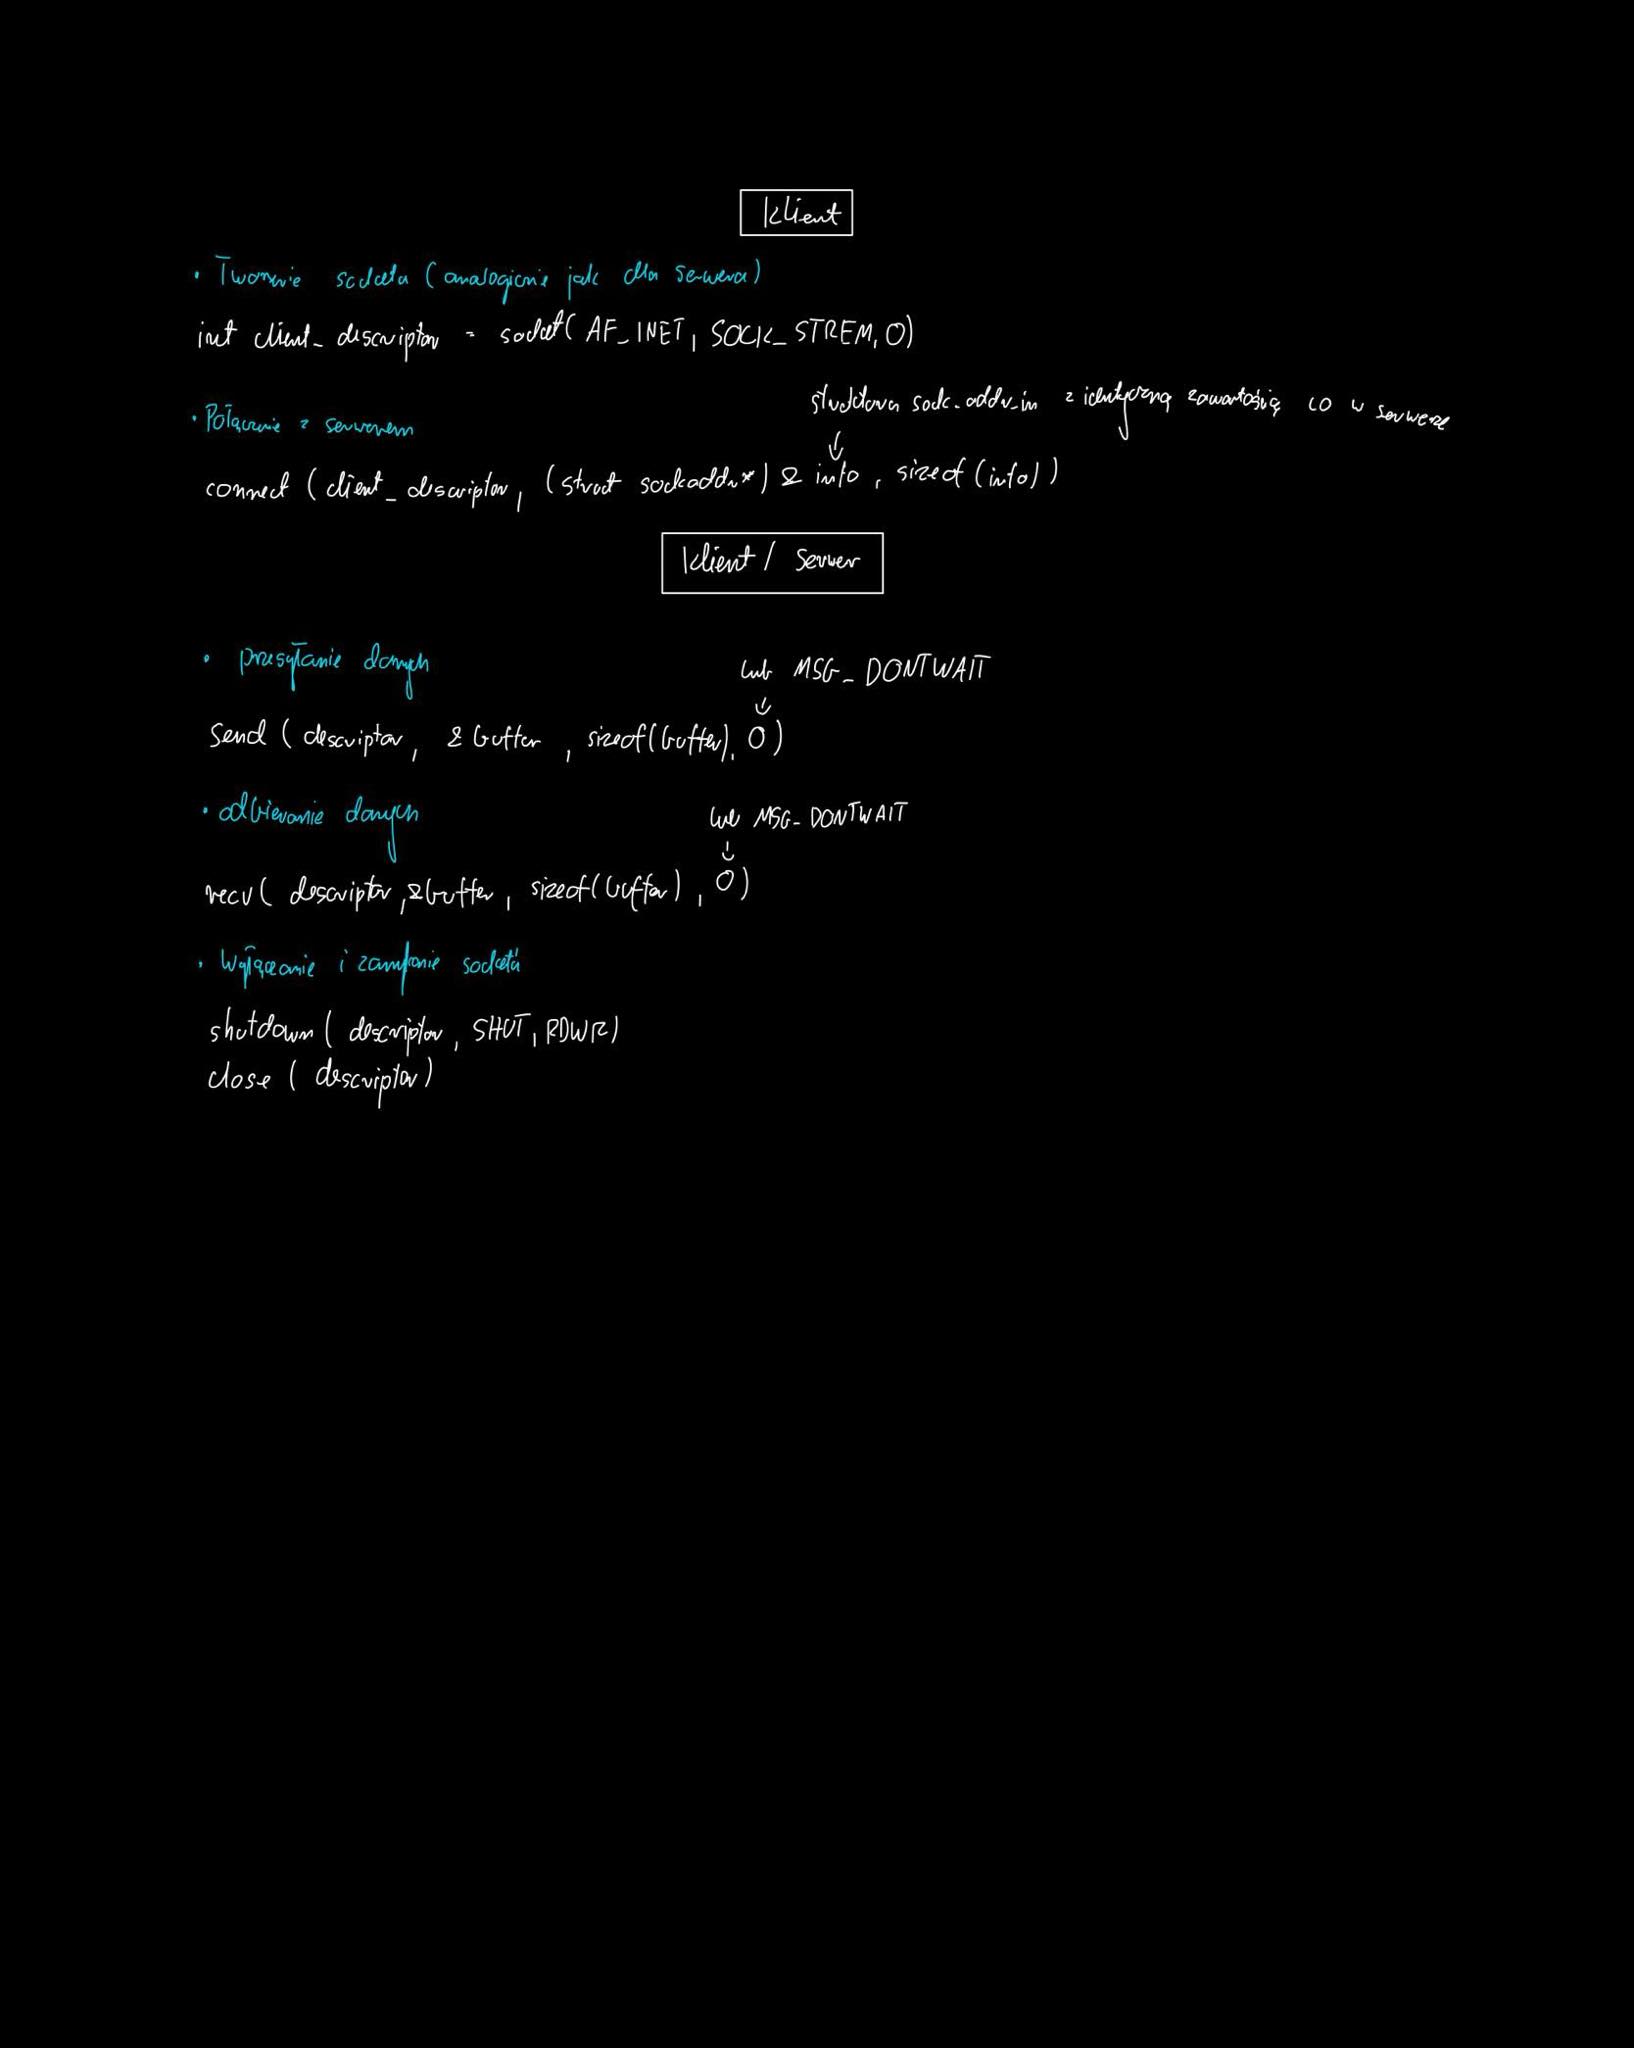 Klient
• Tworzenie socketa (analogicznie jak dla serwera)
int client_descriptor = socket( AF_INET, SOCK_STREM, 0)
struktura sock_addr_in z identyczną zawartością co w serwerze
• Połączenie z serwerem
↓
connect (client_descriptor, (struct sockaddr*) & info, sizeof (info) )
Klient / Serwer
• przesyłanie danych
lub MSG_DONTWAIT
↓
Send ( descriptor, & buffer, sizeof(buffer), 0 )
• odbieranie danych
lub MSG_DONTWAIT
↓
recv( descriptor, &buffer, sizeof(buffer), 0)
• Wyłączanie i zamykanie socketa
shutdown( descriptor, SHUT, RDWR)
close ( descriptor)